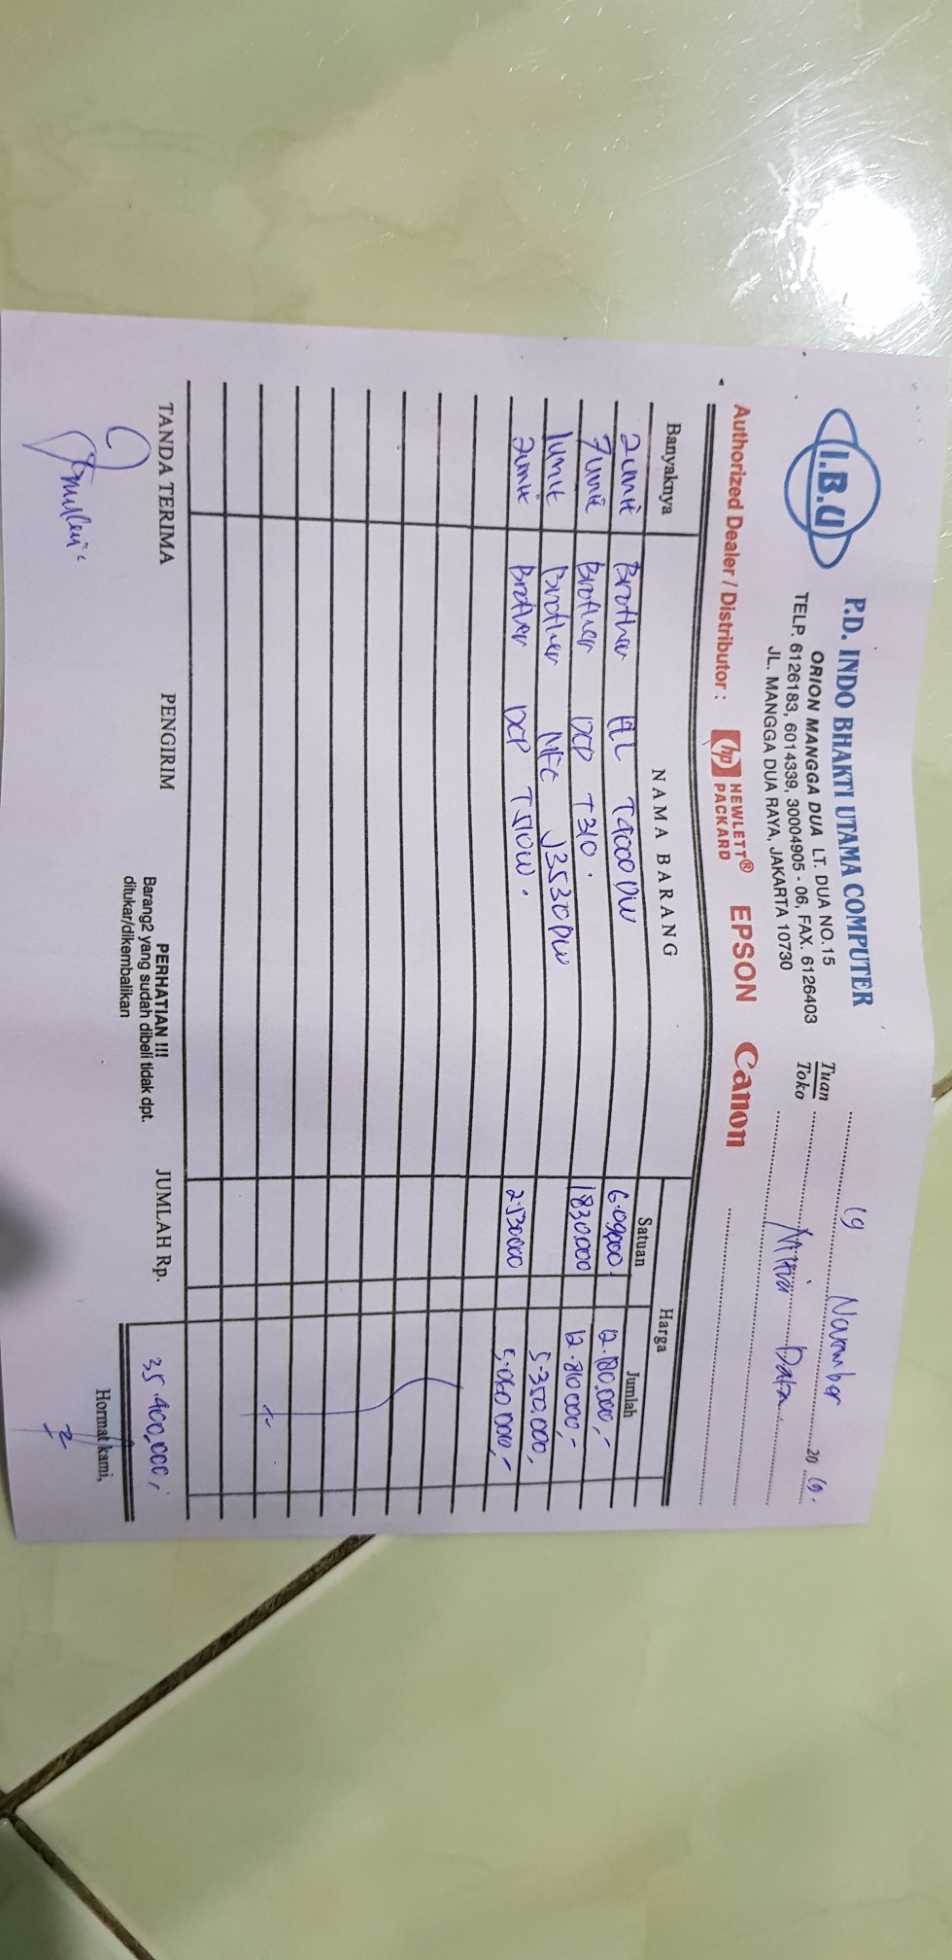 I.B.U
P.D. INDO BHAKTI UTAMA COMPUTER
ORION MANGGA DUA LT. DUA NO.15
TELP. 6126183, 6014339, 30004905 - 06. FAX. 6126403
JL. MANGGA DUA RAYA, JAKARTA 10730
19 November 20 19.
Tuan
Toko
Mitra Data
Authorized Dealer / Distributor : hp HEWLETT® PACKARD EPSON Canon
Banyaknya NAMA BARANG Harga
Satuan Jumlah
2 unit Brother HL T4000 DW 6.090.000 12.180.000,-
7 unit Brother DCP T310. 1830.000 12.810.000,-
1 unit Brother MFC J3530DW 5.350.000,
2 unit Brother DCP T510W. 2.530.000 5.060.000,-
TANDA TERIMA PENGIRIM
PERHATIAN !!!
Barang2 yang sudah dibeli tidak dpt.
ditukar/dikembalikan
JUMLAH Rp. 35.400,000,-
Hormat kami,